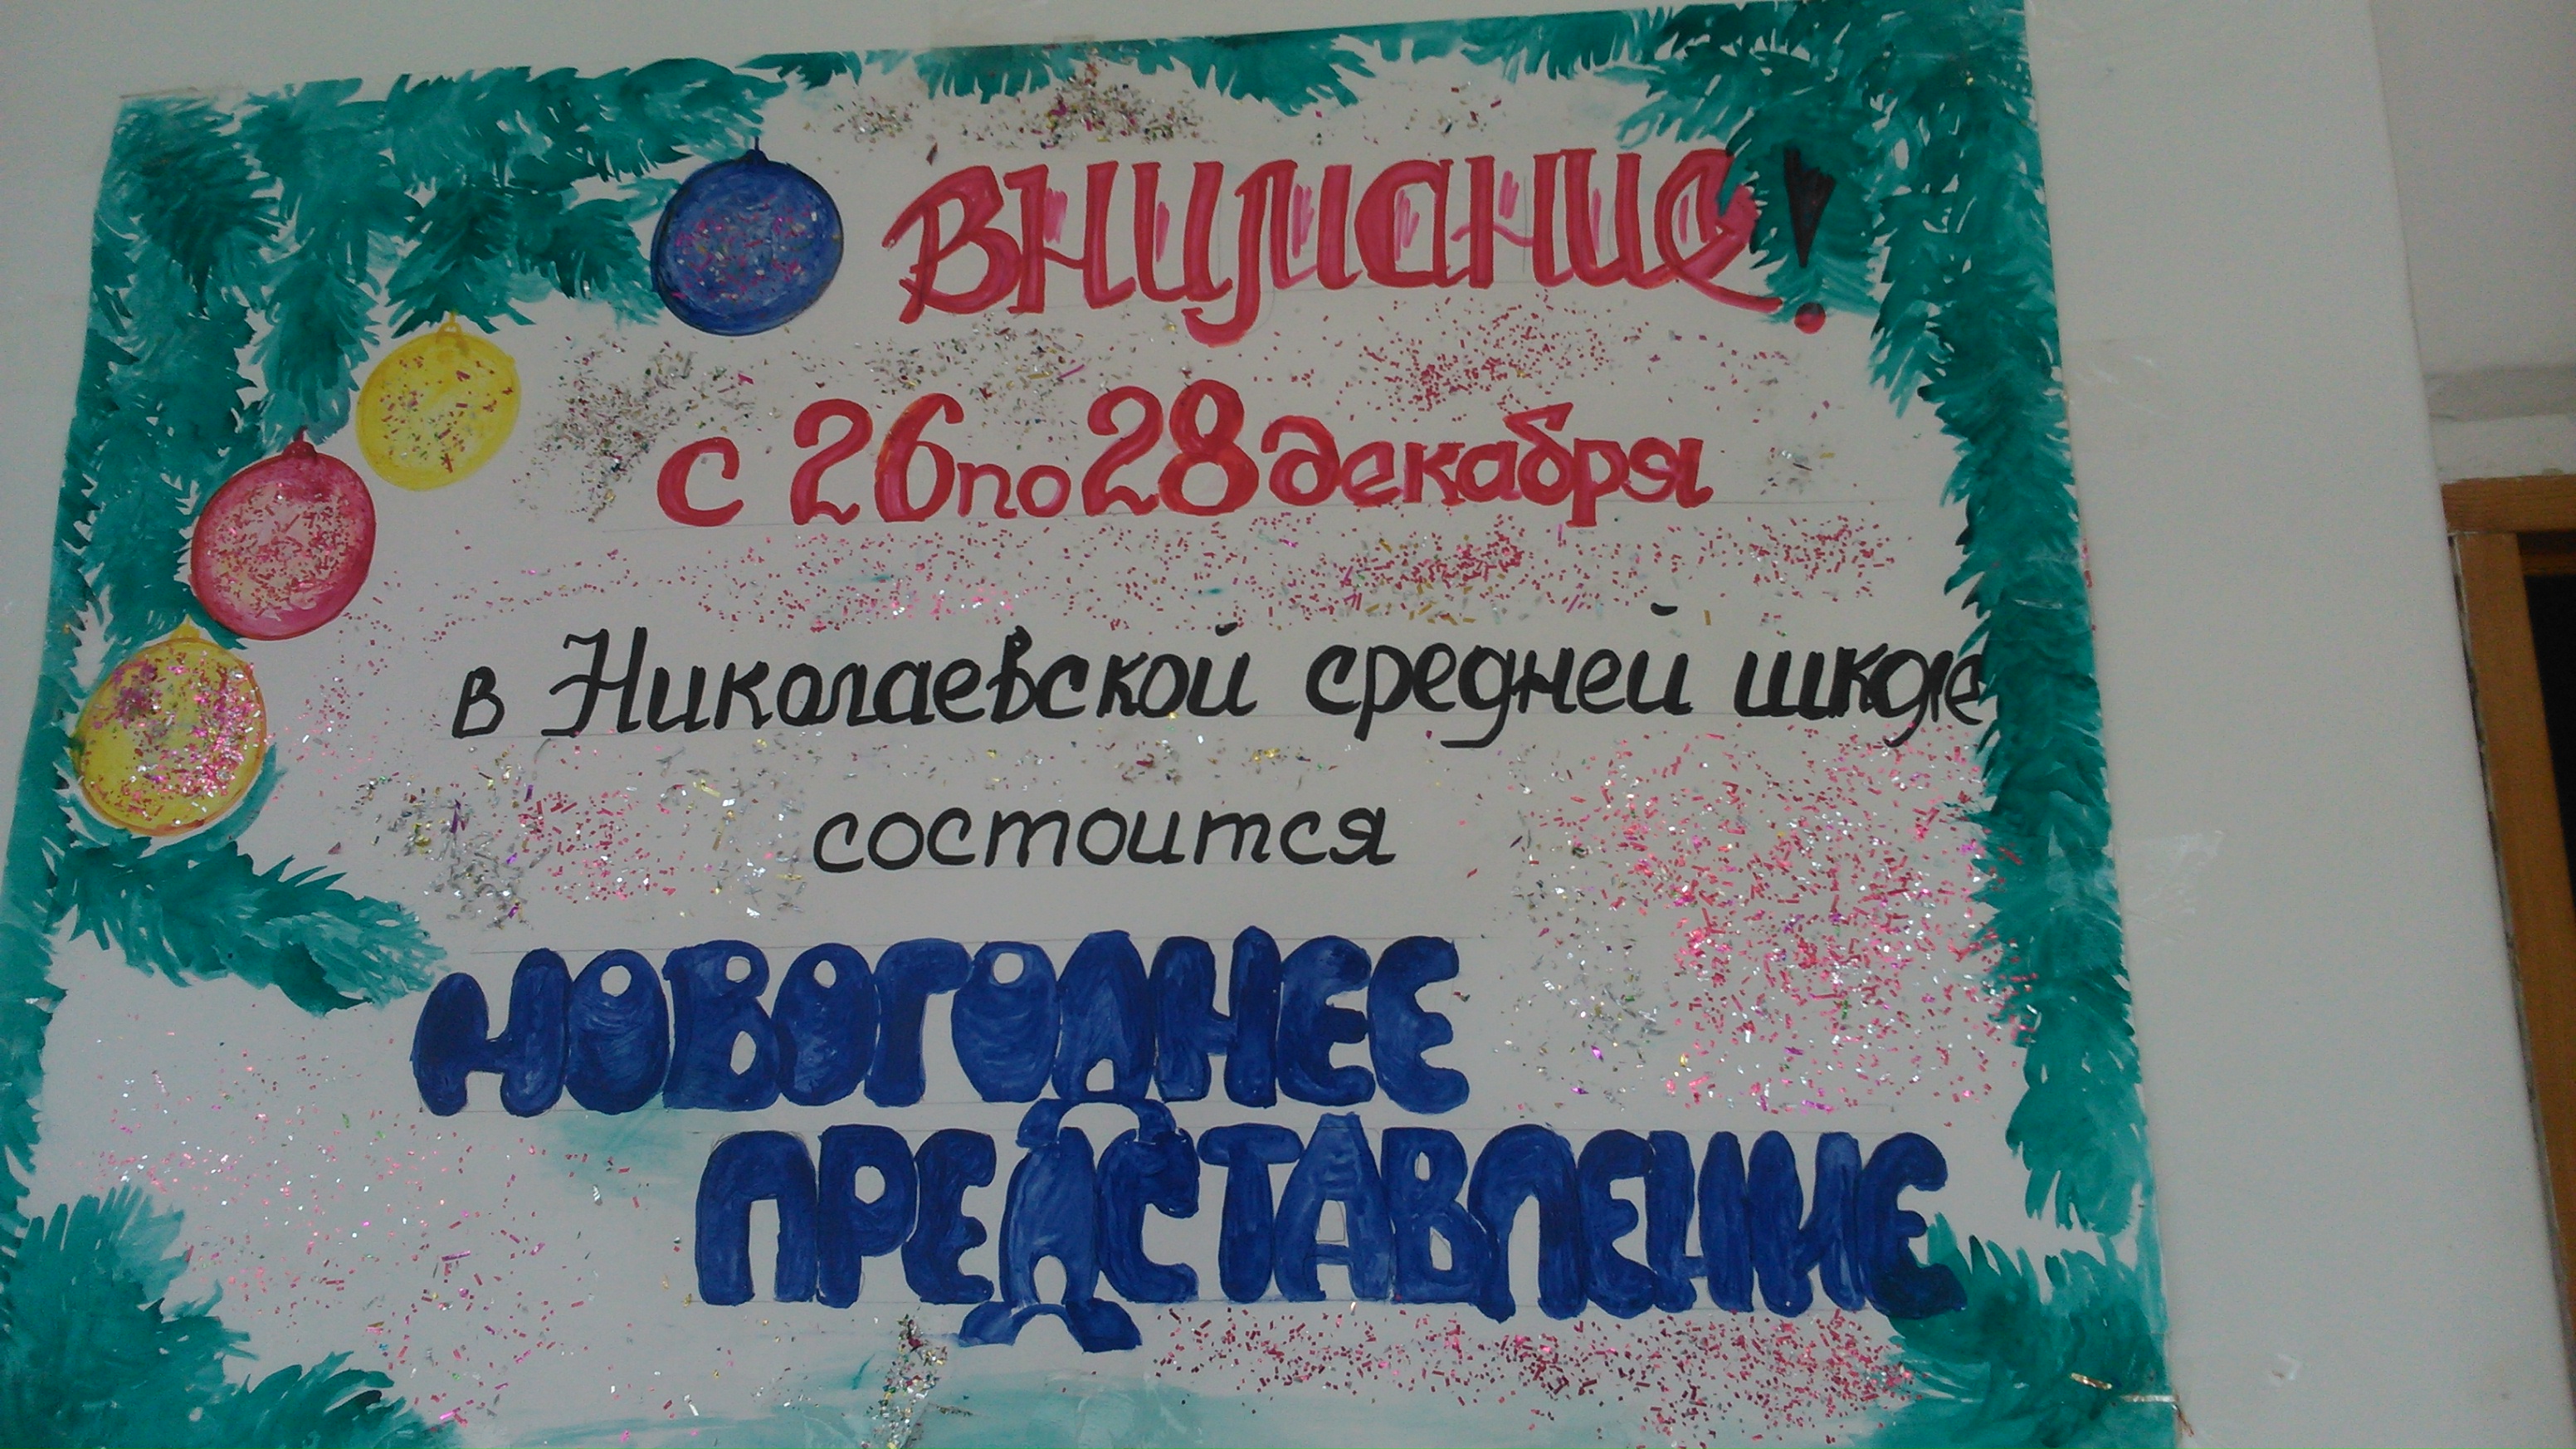 Внимание!
с 26 по 28 декабря
в Николаевской средней школе
состоится
НОВОГОДНЕЕ
ПРЕДСТАВЛЕНИЕ